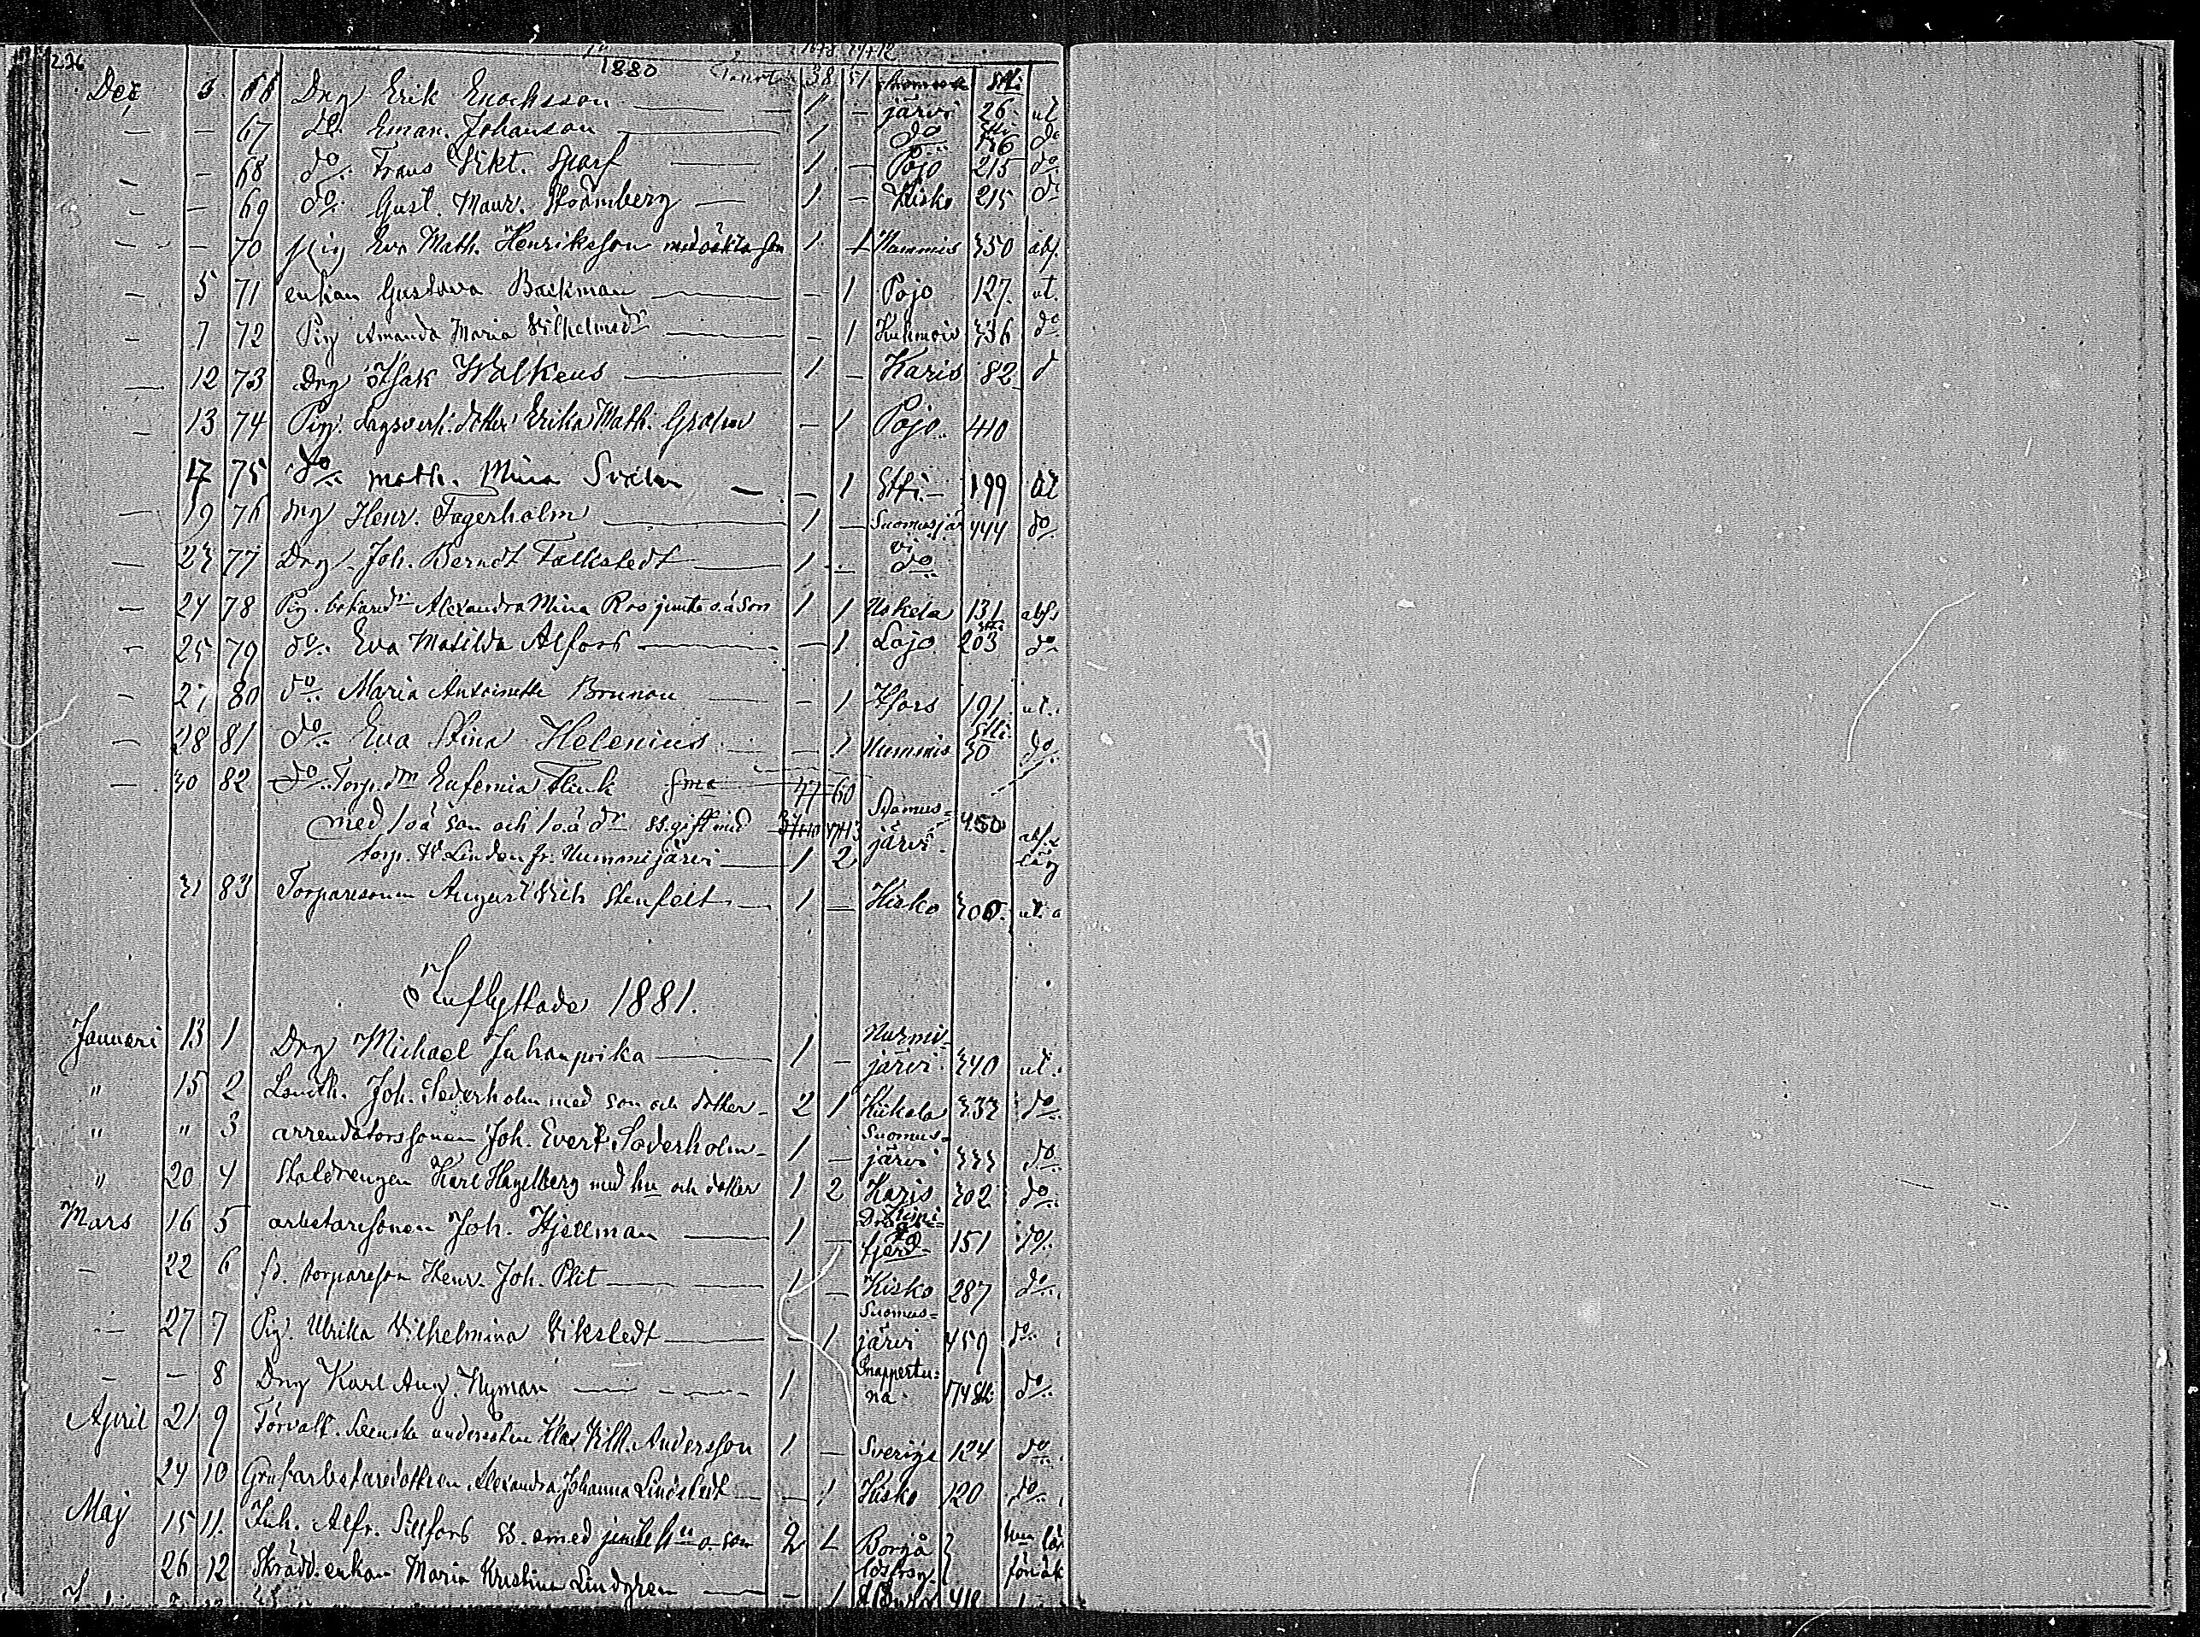 226 1880 38 51
Dec 3 66 Drg Erik Enochsson 1 — järvi 26 ut
— — 67 Do Eman. Johanson 1 do 136 do
— — 68 do Frans Vikt. Skarf 1 — Pojo 215 do
— — 69 do Gust. Maur. Strömberg — 1 — Kisko 215 do
— — 70 pig Eva Math. Henriksson med oäkta son 1 1 Nummis 350 abs.
— 5 71 enkan Gustava Backman — 1 Pojo 127 ut.
— 7 72 Pig Amanda Maria Vilhelmsdr — 1 Kuhmois 336 do
— 12 73 Drg Isak Walkeus 1 — Karis 82 d
— 13 74 Pig. dagsverk. dotter Erika Math. — 1 Pojo 410
17 75 do math. Mina — — 1 199 ut
— 19 76 drg Henr. Fagerholm 1 — Suomusjär 444 do
vi
— 23 77 Drg. Joh. Berndt Falkstedt 1 — do
— 24 78 Pig. Alexandra Mina Ros jemte o.ä son 1 1 Uskela 131 abs
— 25 79 do Eva Matilda Alfors — 1 Lojo 203 do
— 27 80 do Maria Antoinette Brunou — 1 Hfors 191 ut.
— 28 81 do Eva Stina Helenius — 1 Nummis 30 do
— 30 82 do Torp. dr Eufemia Flink 47 60 Suomus=
med 1 oä son och 1 o.ä dr ss. gift med järvi 450 abs.
torp. Linden fr. Nummijärvi 1 2
31 83 Torparesonen August Vilh Stenfelt 1 — Kisko 306 ut
Inflyttade 1881.
Januari 13 1 Drg Michael Juhanpoika 1 — Nurmi-
järvi 340 ut.
" 15 2 Landth. Joh. Söderholm med son och dotter 2 1 Kiikala 333 do
" " 3 arrendatorssonen Joh. Evert Söderholm 1 — Suomus=
järvi 333 do
" 20 4 Staldrengen Karl Hagelberg med hu och dotter 1 2 Karis 302 do
Mars 16 5 arbetaresonen Joh. Hjellman 1 — Drags=
fjerd 151 do
— 22 6 fd. torpareson Henr. Joh. Plit 1 — Kisko 287 do
— 27 7 Pig. Ulrika Vilhelmina Vikstedt — 1 Suomus=
järvi 459 do
— — 8 Drg Karl Aug. Nyman 1 Snappertu=
na 174 do
April 21 9 Förvalt. Svenske undersåten Klas Vilh. Andersson 1 — Sverige 124 do
24 10 Grufarbetaredottren Alexandra Johanna Lindstedt — 1 Kisko 120 do
Maj 15 11. Inh. Alfr. Sillfors ss. smed jemte hu o. son 2 1 Borgå
26 12 Skrädd. enkan Maria Kristina Lindgren — 1 418